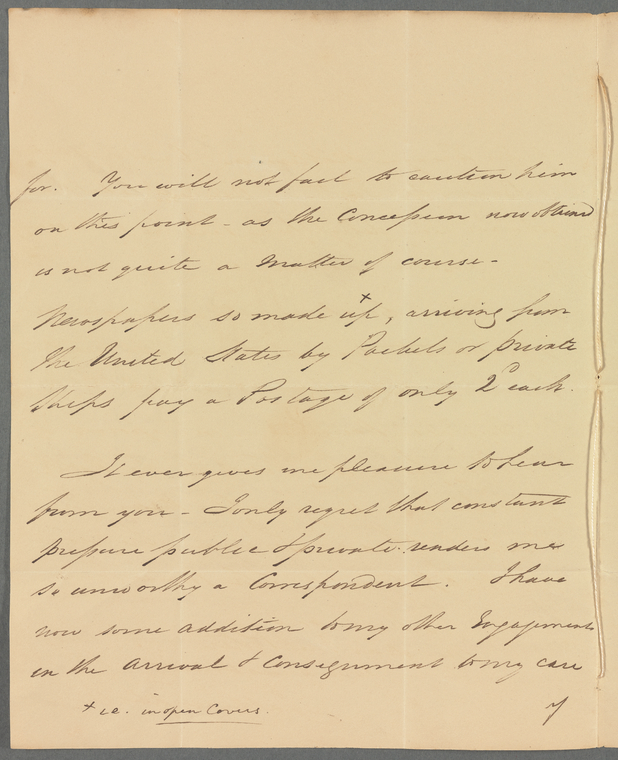 for. You will not fail to caution him
on this point - as the Concession now obtained
is not quite a Matter of course -
Newspapers so made up +, arriving from
the United States by Packets or private
Ships pay a Postage of only 2d each.
It ever gives me pleasure to hear
from you - I only regret that constant
pressure public & private renders me
so unworthy a Correspondent. I have
now some addition to my other Engagements
in the arrival & Consignment to my care
+ i.e. in open Covers.